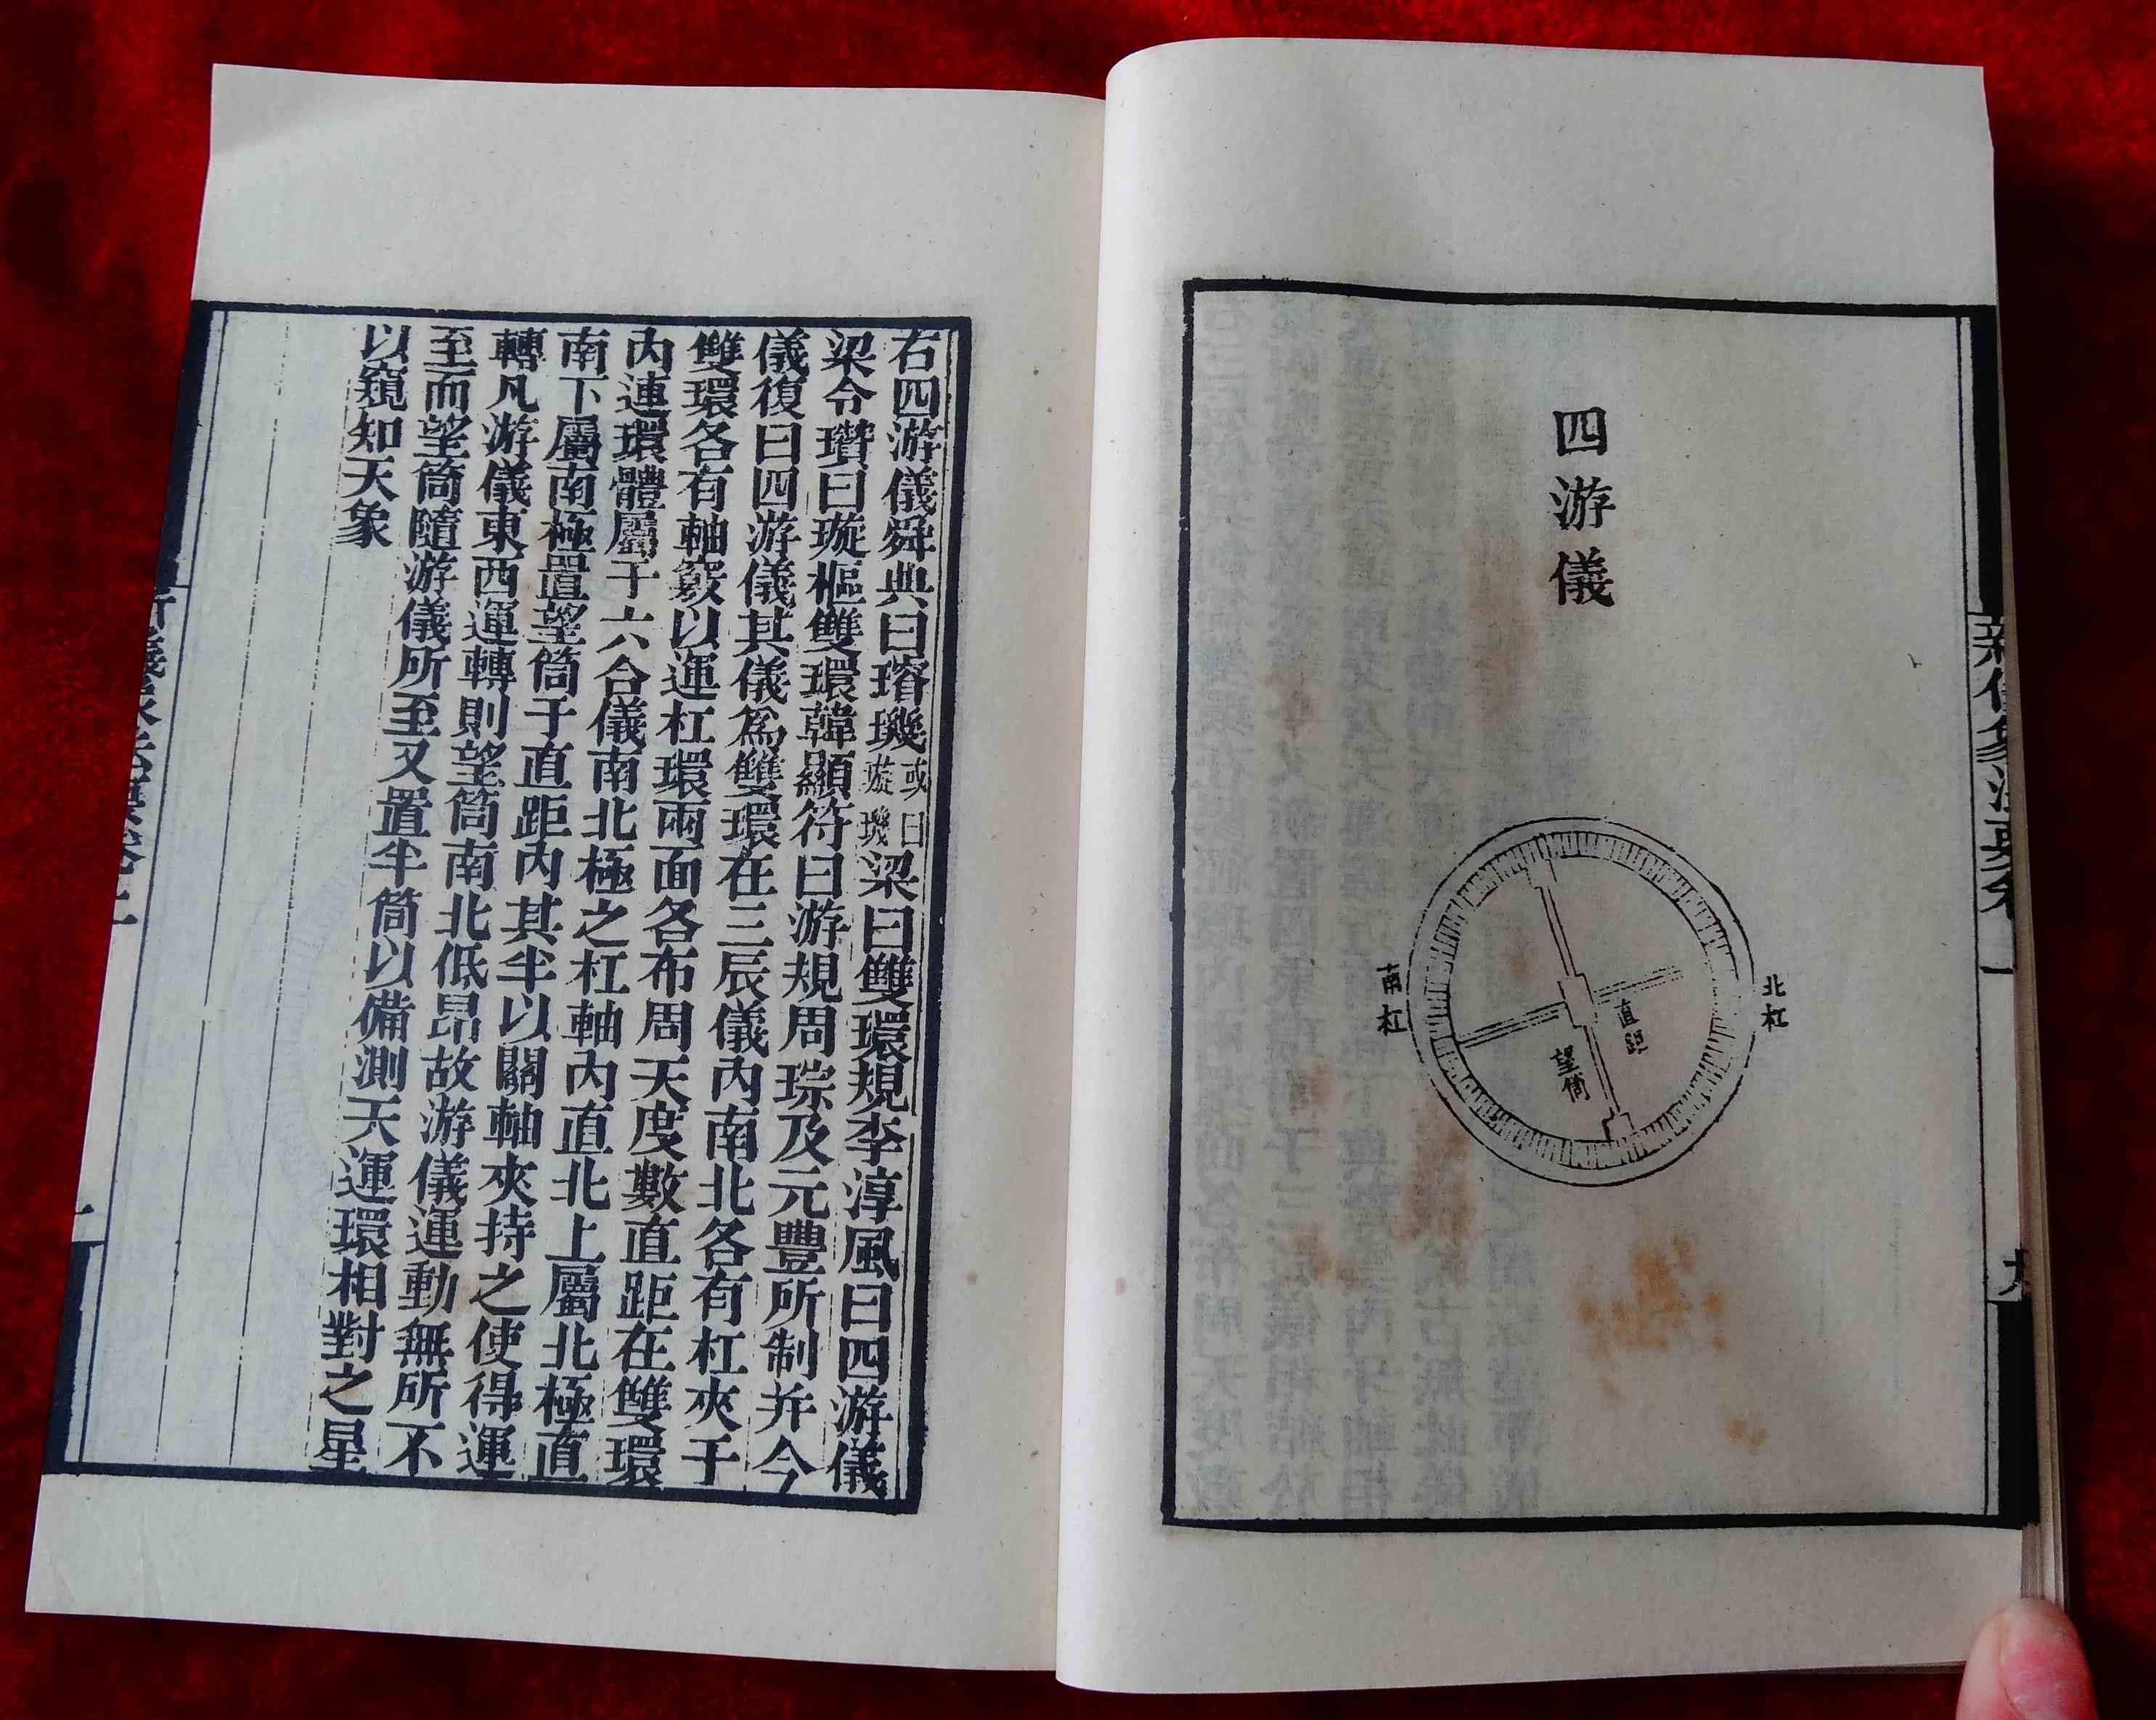 四游儀
北杠
南杠
直距
望筒
右四游儀舜典曰璿璣或曰璇璣梁曰雙環規李淳風曰四游儀
梁令瓚曰璇樞雙環韓顯符曰游規周琮及元豐所制并今
儀復曰四游儀其儀爲雙環在三辰儀內南北各有杠夾于
雙環各有軸竅以運杠環兩面各布周天度數直距在雙環
內連環體屬于六合儀南北極之杠軸內直北上屬北極直
南下屬南極置望筒于直距內其半以關軸夾持之使得運
轉凡游儀東西運轉則望筒南北低昂故游儀運動無所不
至而望筒隨游儀所至又置半筒以備測天運環相對之星
以窺知天象